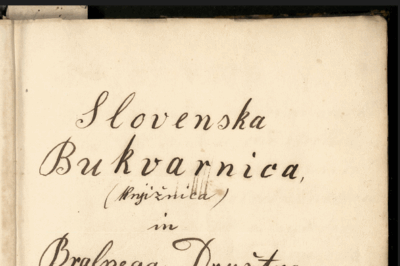 Slovenska
Bukvarnica,
(Knjižnica)
in
Bralnega Društva